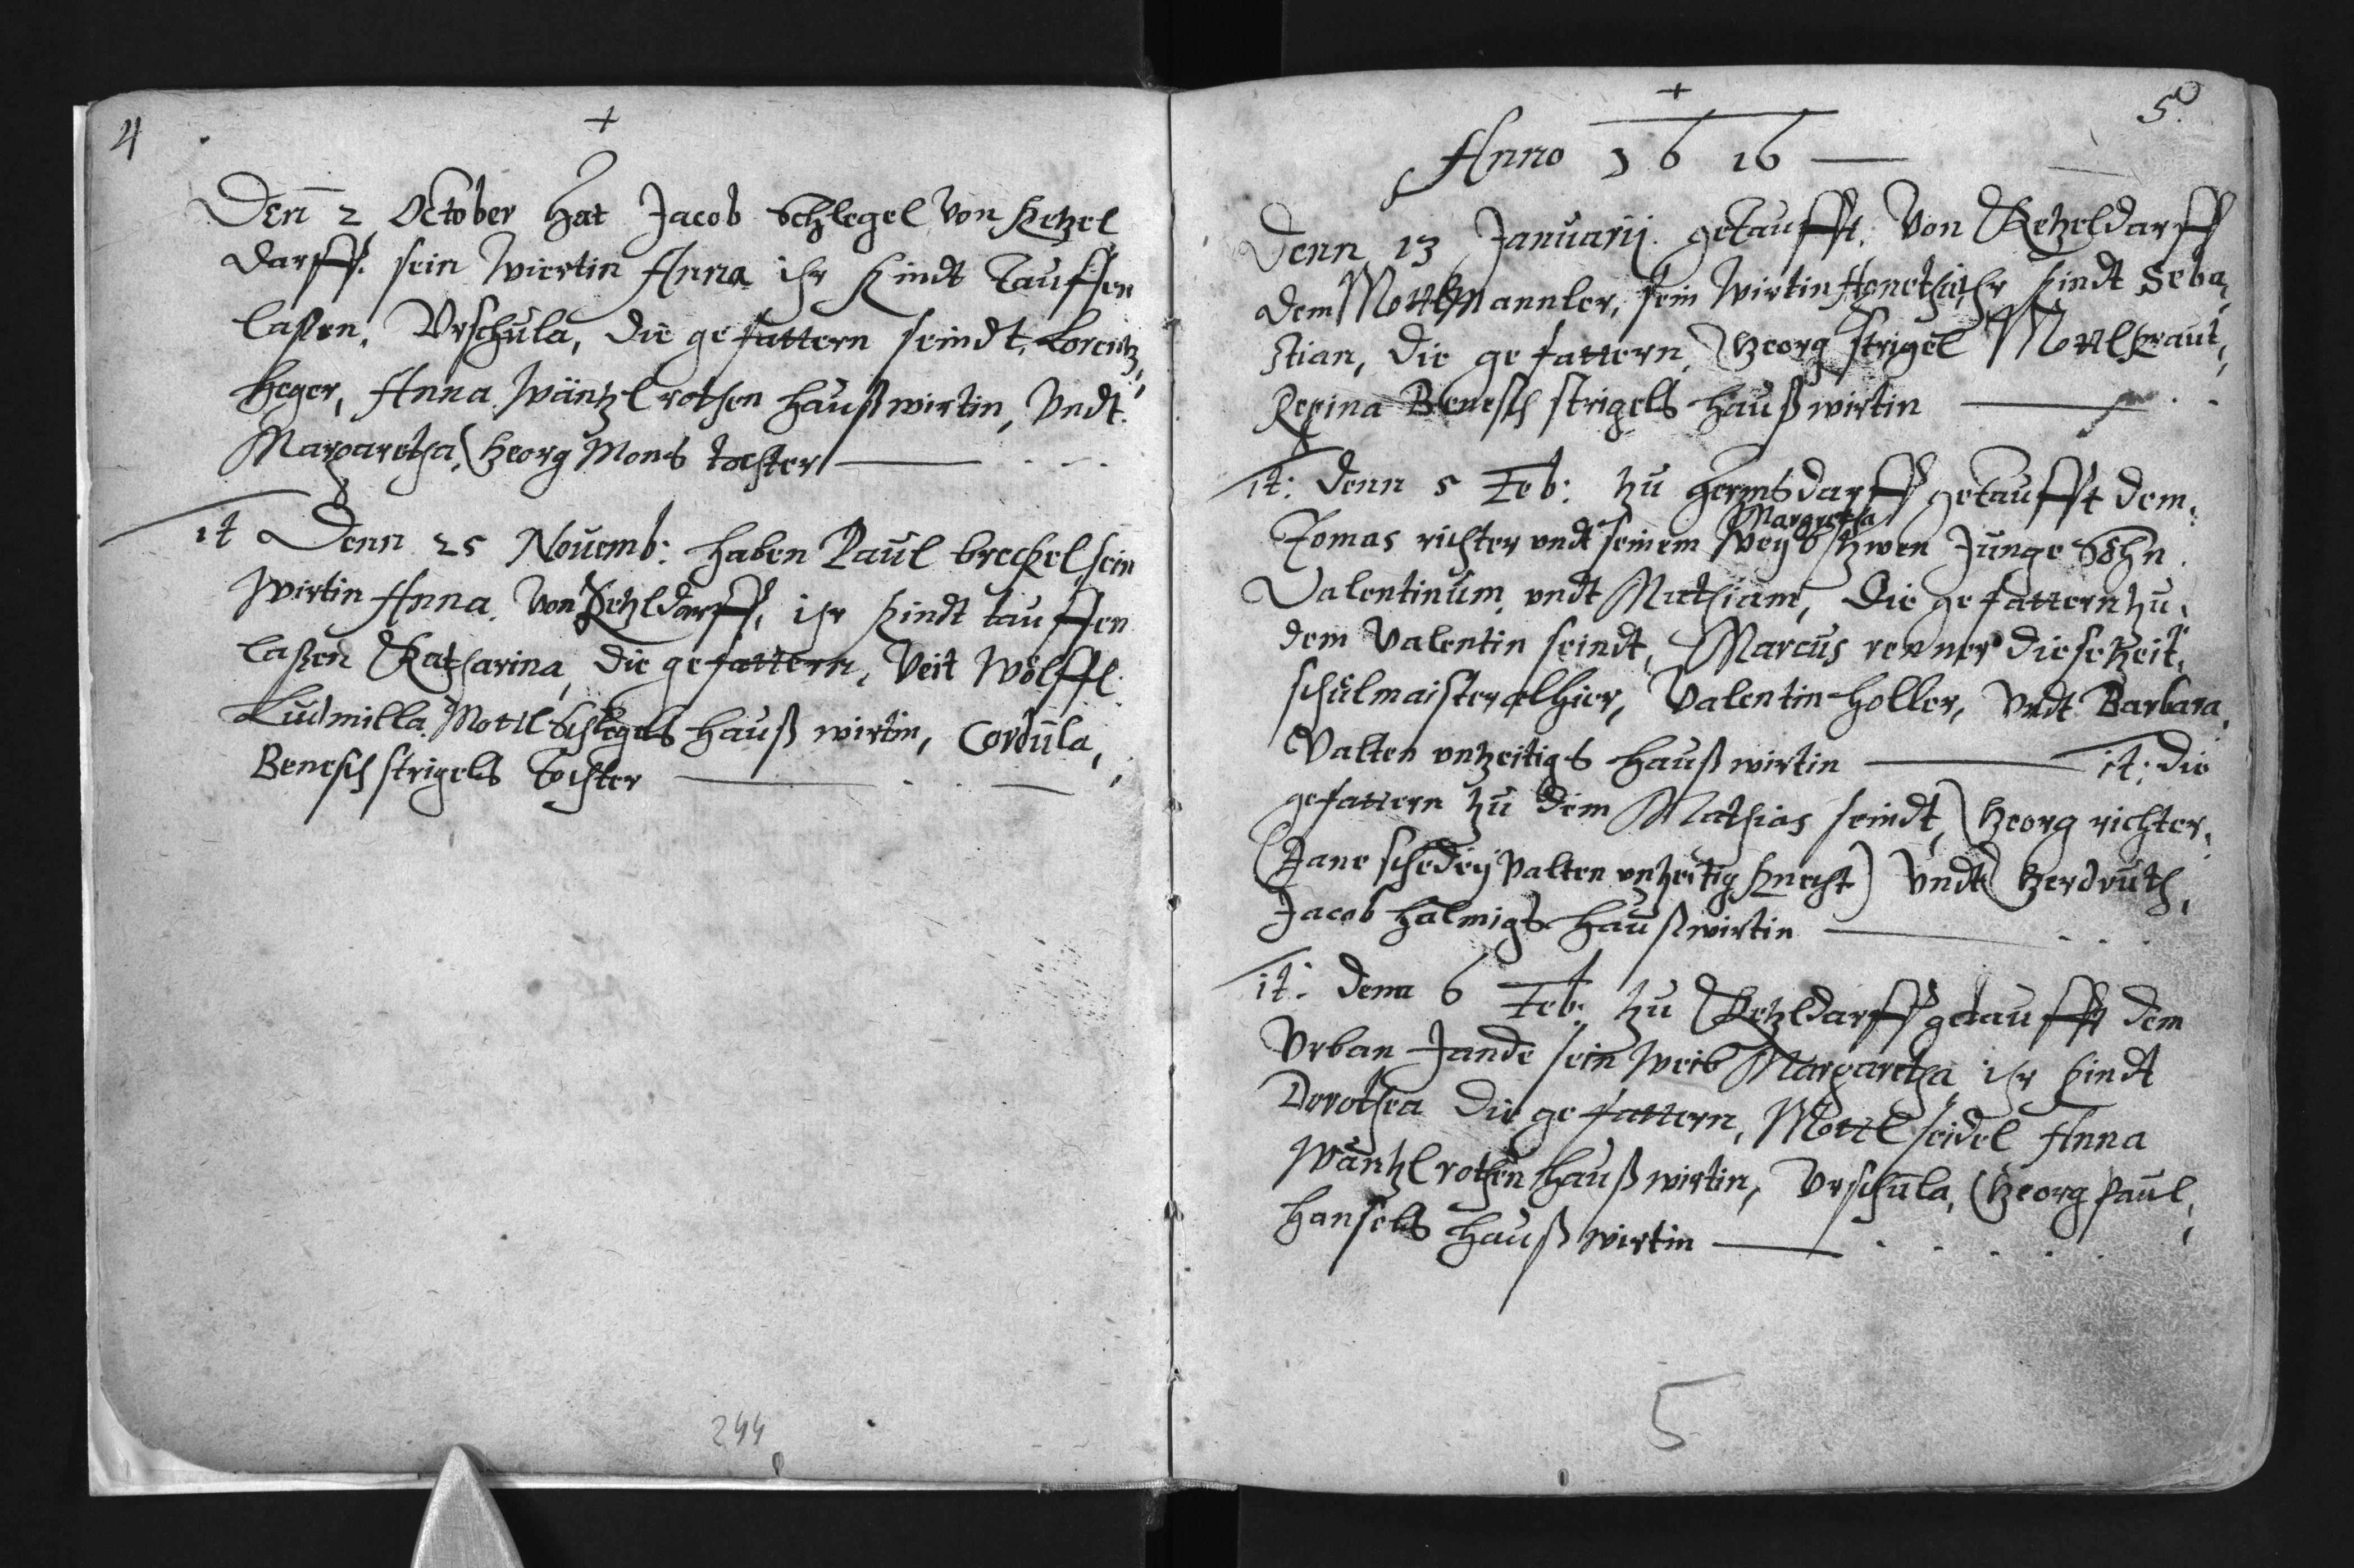 4
+
Denn 2 October hat Jacob Schlegel von Ketzel
darff. sein Wiertin Anna ihr Kindt tauffen
laßen. Urschula, die gefattern seindt, Lorentz
heger, Anna Wäntzl rothen haußwirtin, Undt
Margaretha, Georg Mons tochter
it Denn 25 Nouemb: haben Paul breckel sein
Wirtin Anna. von Ketzldarff, ihr Kindt tauffen
laßen Katharina, die gefattern, Veit Wölffl
Ludmilla Mottl Schlegels hauß wirtin, Cordula,
Benesch strigels Tochter
244
+
5.
Anno 1616
Denn 13 Januarij. getaufft. Von Ketzeldarff
dem Mottl Mannler, sein Wirtin ihr Kindt Seba
stian, die gefattern, Georg strigel Mottl Kraut,
Regina Benesch strigels haußwirtin
it: Denn 5 Feb: zu hermsdarff getaufft dem
Margretha
Tomas richter undt seinem Weyb zwen Junge Söhn
Valentinum undt Mathiam, Die gefattern zu
dem Valentin seindt, Marcus renner diese Zeit
schulmaister alhier, Valentin holler, Vndt Barbara
Valten vnzeitigs haußwirtin it: die
gefattern zu dem Mathias seindt, Georg richter
(Jane schedey Valten vnzeitig Knecht) Vndt Gerdruth,
Jacob halmigs haußwirtin
it: Denn 6 Feb: zu Ketzldarff getaufft dem
Vrban Jande sein Weib Margaretha ihr Kindt
Dorothea die gefattern, Mottl seidel Anna
Wäntzl rothen haußwirtin, Vrschula, Georg Paul
hansels haußwirtin
5